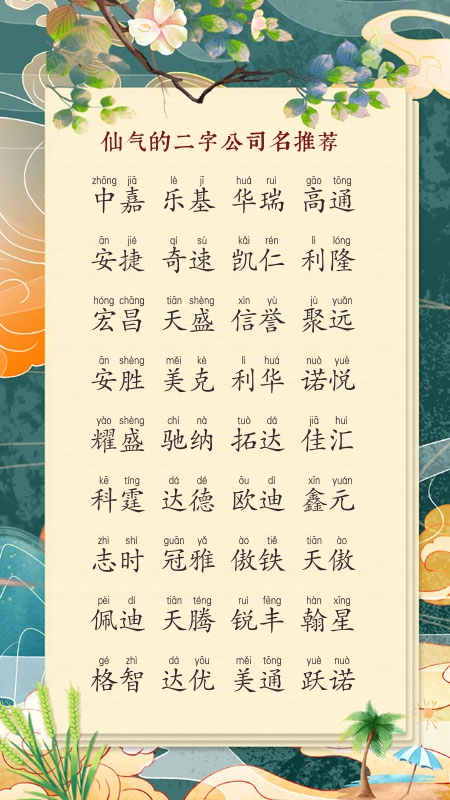 仙气的二字公司名推荐
zhōng jiā lè jī huá ruì gāo tōng
中嘉 乐基 华瑞 高通
ān jié qí sù kǎi rén lì lóng
安捷 奇速 凯仁 利隆
hóng chāng tiān shèng xìn yù jù yuǎn
宏昌 天盛 信誉 聚远
ān shèng měi kè lì huá nuò yuè
安胜 美克 利华 诺悦
yào shèng chí nà tuò dá jiā huì
耀盛 驰纳 拓达 佳汇
kē tíng dá dé ōu dí xīn yuán
科霆 达德 欧迪 鑫元
zhì shí guān yǎ ào tiě tiān ào
志时 冠雅 傲铁 天傲
pèi dí tiān téng ruì fēng hàn xīng
佩迪 天腾 锐丰 翰星
gé zhì dá yōu měi tōng yuè nuò
格智 达优 美通 跃诺